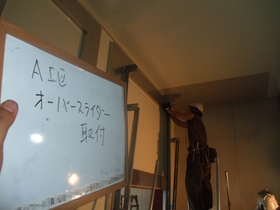 A工区
オーバースライダー
取付